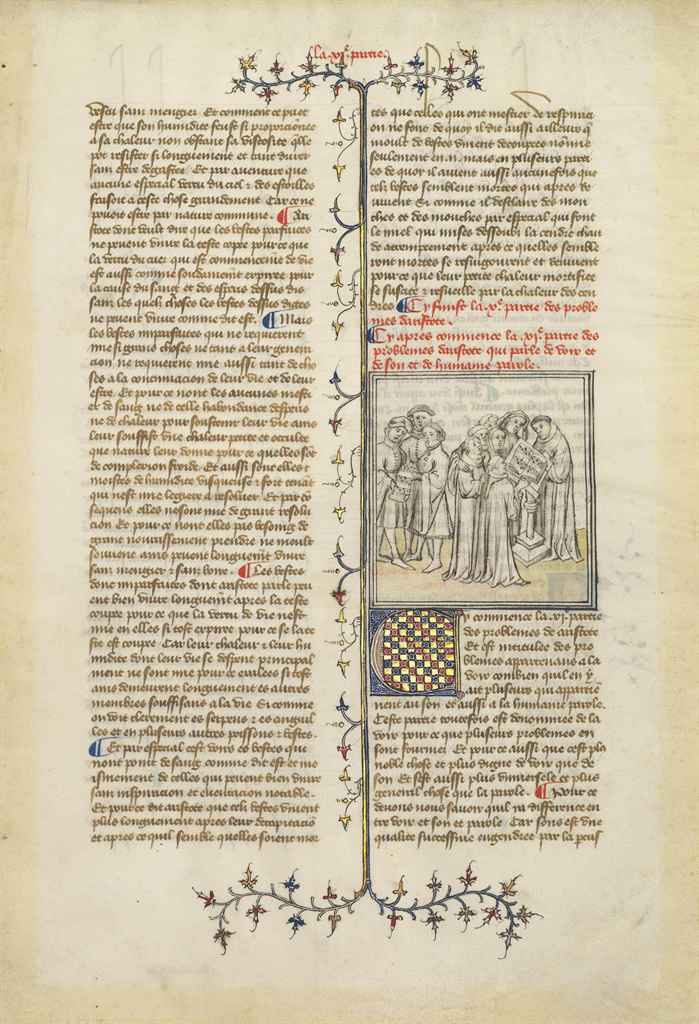 la .xi.e partie.
vescu sans mengier Et comment ce puet
estre que son humidite feust si proporcionee
a sa chaleur non obstant sa viscosite qlle
pot resister si longuement et tant durer
sans estre degastee. Et par aventure que
aucune especial vertu du ciel & des estoilles
faisoit a ceste chose grandement. Car ce ne
povoit estre par nature commune. ¶ Aris
tote donc veult dire que les bestes parfaites
ne pevent vivre la teste copee pour ce que
la vertu du cuer qui est commencement de vie
est aussi comme soudainement expiree pour
la cause du sang et des esperis dessus dis
sans les quels choses les bestes dessus dites
ne pevent vivre comme dit est. ¶ Mais
les bestes imparfaites qui ne requierent
mie si grans choses ne tant a leur genera
cion ne requierent mie aussi tant de cho
ses a la continuacion de leur vie et de leur
estre. Et pour ce n'ont les aucunes mesti
er de sang ne de celle habondance desperis
ne de chaleur pour soustenir leur vie ains
leur souffist une chaleur petite et occulte
que nature leur donne pour ce quelles sont
de complexion froide. Et aussi sont elles
moistes de humidite visqueuse & fort tenant
qui nest mie legiere a resoluer. Et par con
sequens elles ne sont mie de grant resolu
cion Et pour ce nont elles pas besoing de
grant nourrissement prendre ne moult
souvent ains pevent longuement vivre
sans mengier & sans boire. ¶ Les bestes
donc imparfaites dont aristote parle peu
ent bien vivre longuement apres la teste
coupee pour ce que la vertu de vie nest
mie en elles si tost expiree pour ce se la te
ste est coupee. Car leur chaleur & leur hu
midite dont leur vie se despent principal
ment ne sont mie pour ce exalees si tost
ains demeurent longuement es autres
membres souffisans a la vie Si comme
on voit clerement es serpens & es anguil
les et en pluseurs autres poissons & bestes.
¶ Et par especial cest voirs es bestes qui
nont point de sang comme dit est et mo
iennement de celles qui pevent bien vivre
sans inspiracion et eventacion notable.
Et pour ce dit aristote que tels bestes vivent
plus longuement apres leur decapitacion
et apres ce quil semble quelles soient mor
tes que celles qui ont mestier de respirer
ou ne sont de quoy il dit aussi ailleurs q
moult de bestes vivent decoupees no mie
seulement en .ii. mais en pluseurs parti
es de quoi il avient aussi aucunefois que
tels bestes semblent mortes qui apres re
vivent Si comme il desclaire des mou
ches et des mouches par especial qui font
le miel qui mises dessoubz la cendre chau
de attrempeement apres ce quelles semble
ront mortes se resvigourent et revivent
pour ce que leur petite chaleur mortifiee
se suscite & resveille par la chaleur des cen
dres ¶ Cy finist la .x.e partie des proble
mes daristote.
¶ Cy apres commence la .xi.e partie des
problemes daristote qui parle de voix et
de son et de humaine parole.
Cy commence la .xi. partie
des problemes de aristote
Et est intitulee des pro
blemes appartenans a la
voix combien quil en y
ait pluseurs qui appartien
nent au son et aussi a la humaine parole.
Ceste partie toutesfois est denommee de la
voix pour ce que pluseurs problemes en
sont fourmez Et pour ce aussi que cest plus
noble chose et plus digne de voix que de
son Et si est aussi plus universele et plus
general chose que la parole. ¶ Pour ce
devons nous savoir quil a difference en
tre voix et son et parole. Car sons est une
qualite successive engendree par la perc